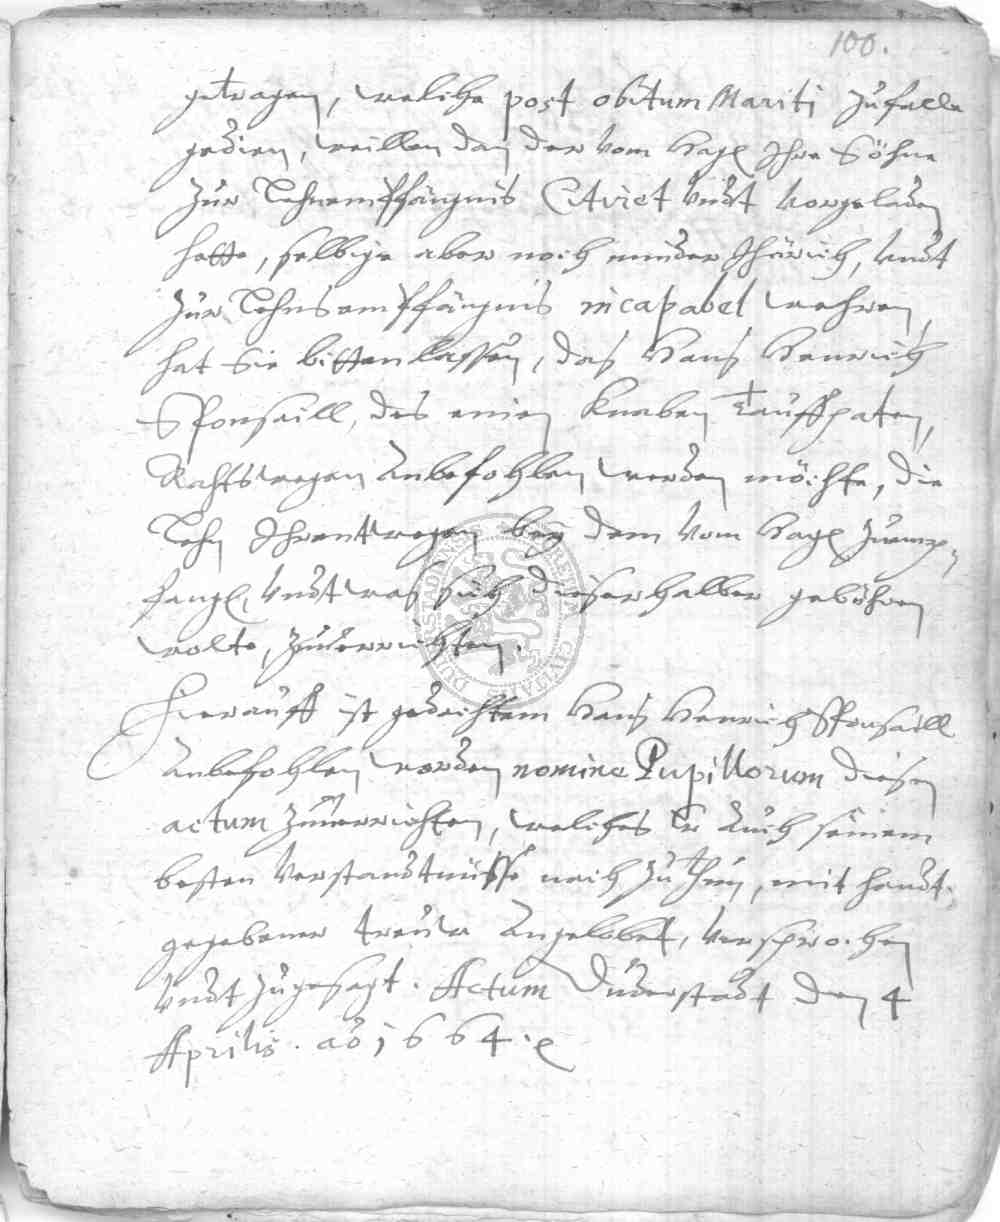 100.
getragen, welche post obitum Mariti zufalle
gedien, weillen dan der vom Hagen Ihre Söhne
zur Lehnempfängnis Citiret undt vorgeladen
hette, selbige aber noch minder Jhärich, undt
zur Lehnsempfängnis incapabel wehren,
hat sie bitten lassen, das Hans Henrich
Sponsaill, des einen Knaben Tauffpaten,
Rahtswegen anbefohlen werden möchte, die
Lehn Ihrentwegen bey dem vom Hagen zuemp-
fangen, undt was sich dieserhalber gebühren
wolte, zuverrichten.
Hierauff ist gedachtem Hans Henrich Sponsaill
anbefohlen worden nomine Pupillorum diesen
actum zuverrichten, welches Er auch seinem
besten Verstandtnüsse nach zu thun, mit handt-
gegebener treuw angelobet, versprochen
undt zugesagt. Actum Duderstadt den 4
Aprilis. ao 1664.
SIGILLUM DUDERSTADENSIS CIVITATIS